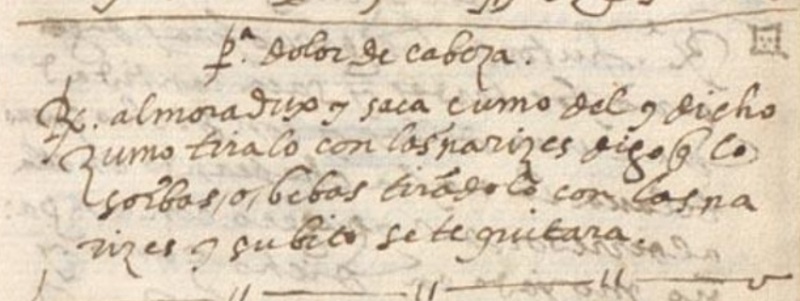 Pª. dolor de cabeza.
R. almoradux y saca çumo del y dicho
zumo tiralo con las narizes digo q̃ lo
sorbas, o, bebas tirãdolo con las na
rizes y subito se te quitara.